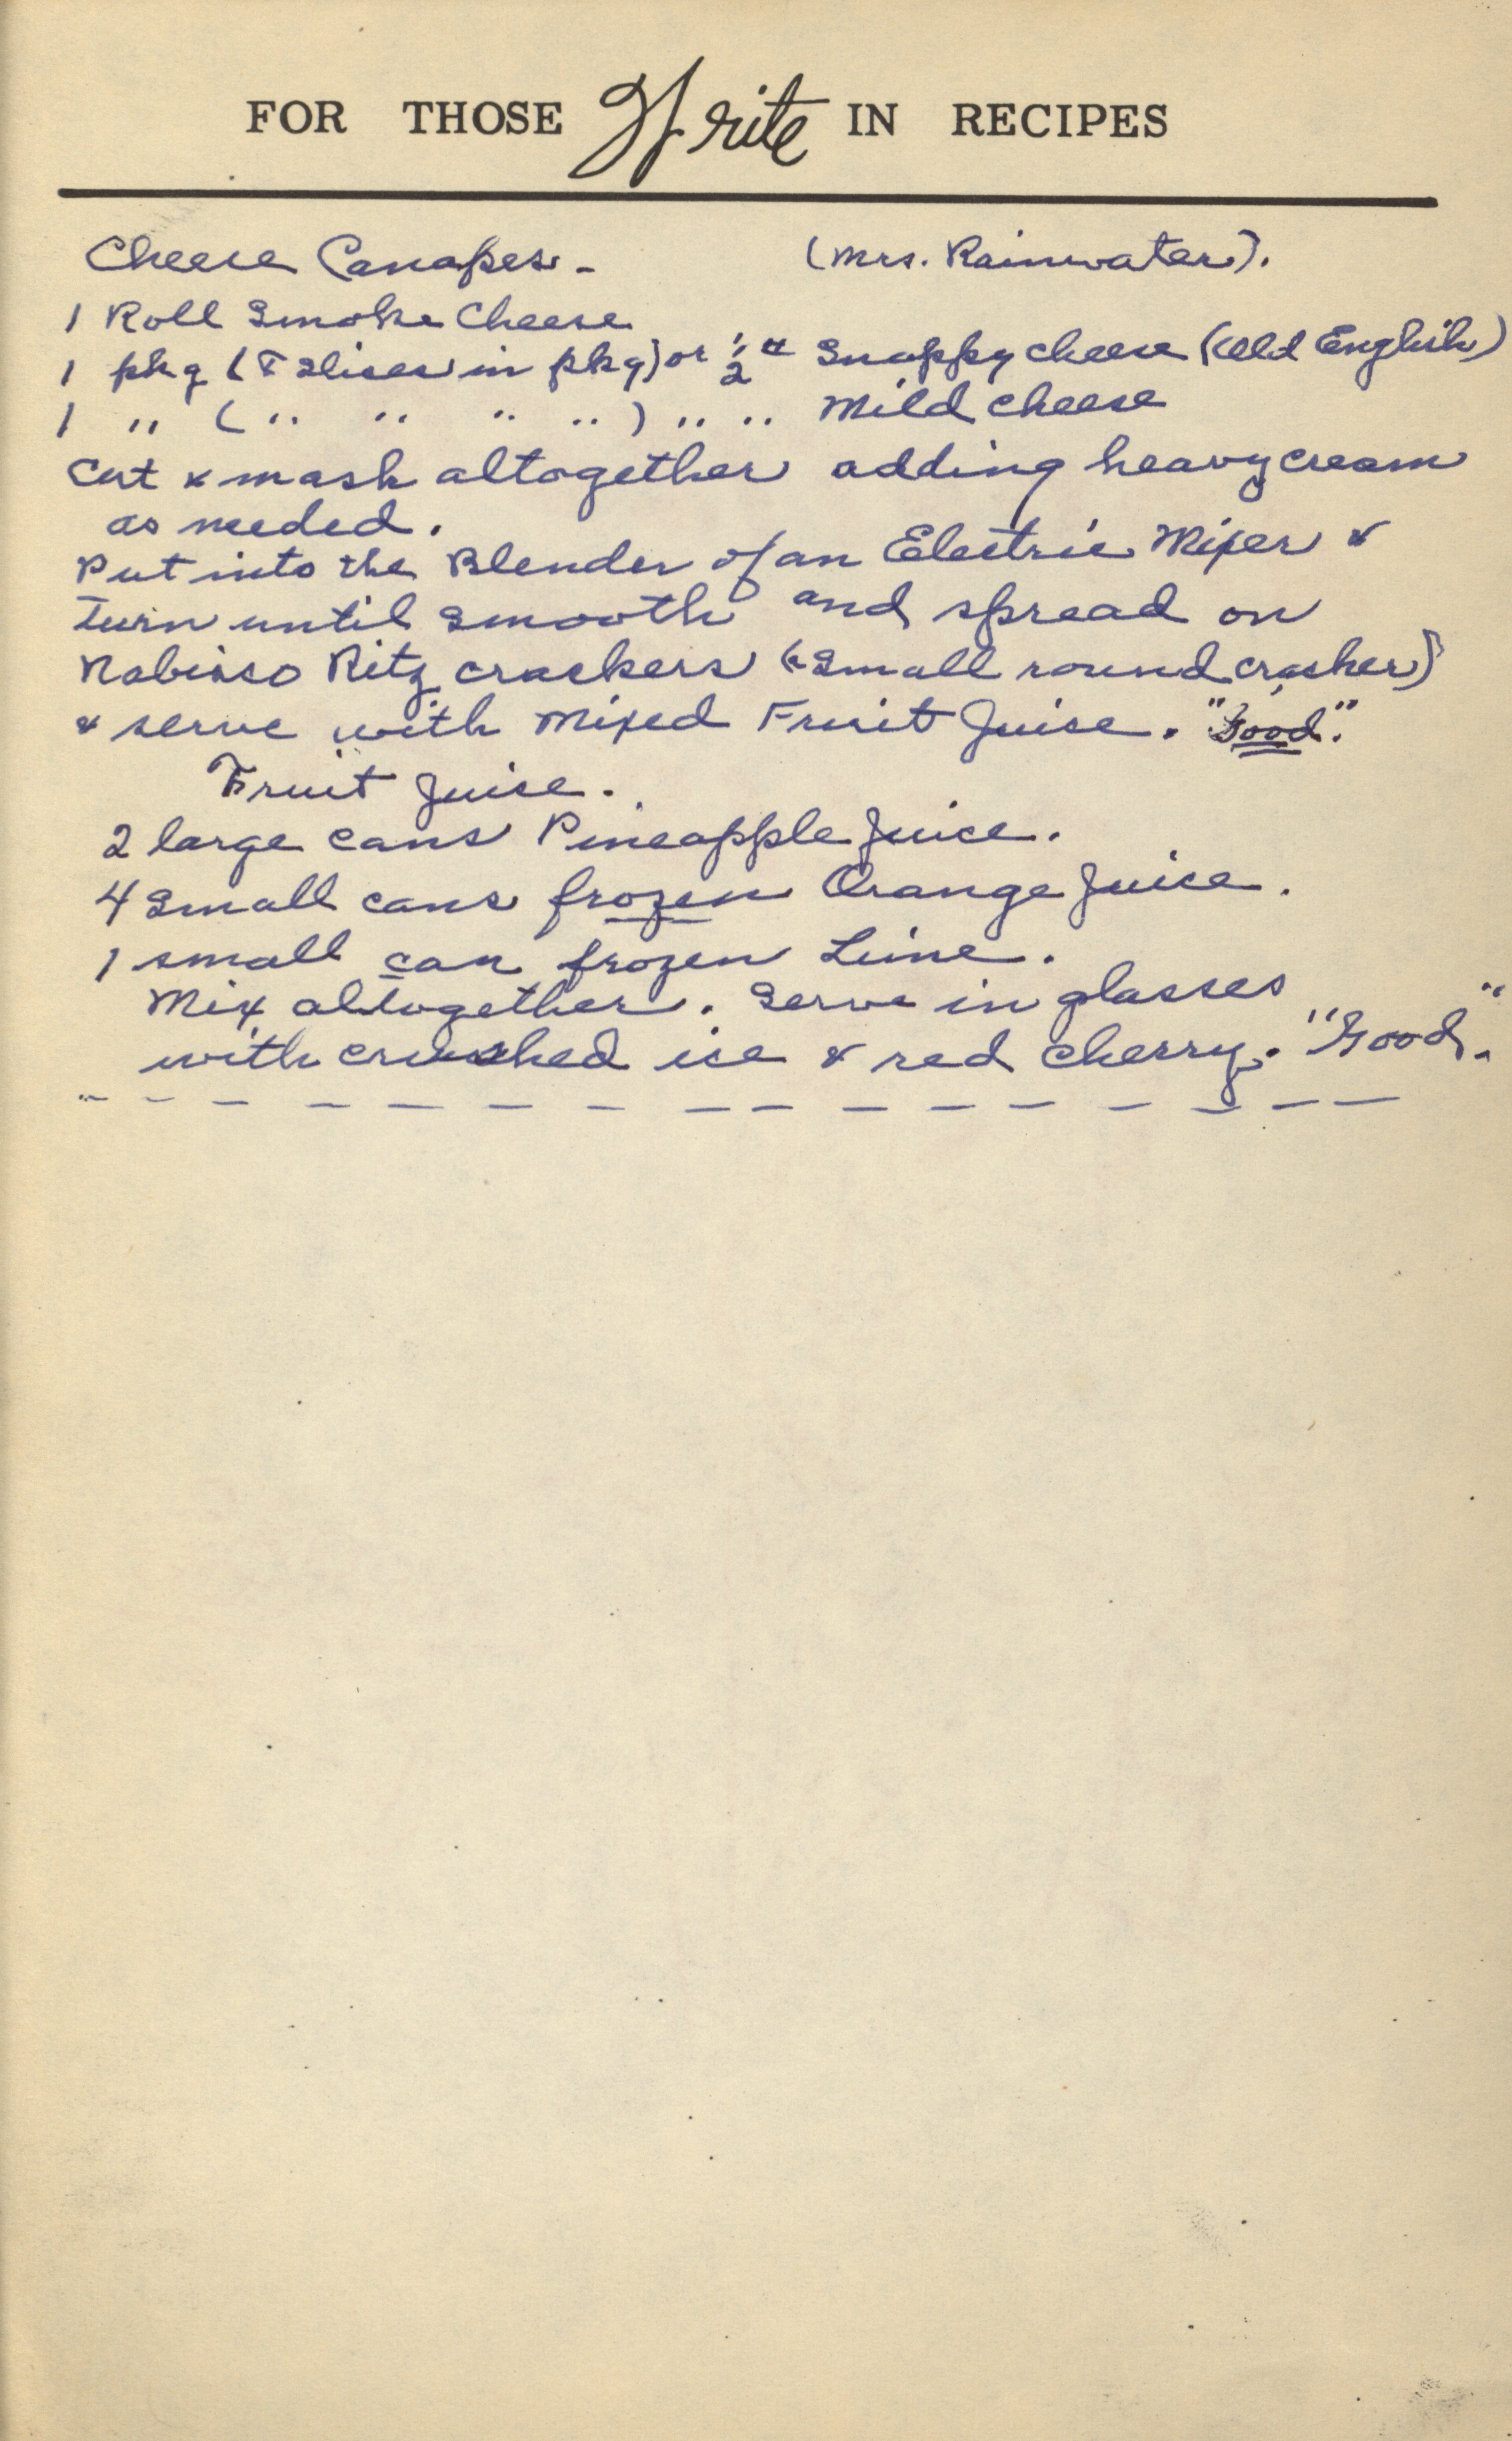 FOR THOSE Write IN RECIPES
Cheese Canapes - (Mrs. Rainwater).
1 Roll Smoke Cheese
1 pkg (8 slices in pkg) or 1/2 # Snappy cheese (Old English)
1 " ( " " " " ) " " Mild cheese
Cut & mash altogether adding heavy cream
as needed.
Put into the Blender of an Electric Mixer &
Turn until smooth and spread on
Nabisco Ritz crackers (small round cracker)
& serve with Mixed Fruit Juise. "Good".
Fruit Juise.
2 large cans Pineapple Juice.
4 Small cans frozen Orange Juice.
1 small can frozen Lime.
Mix altogether. Serve in glasses
with crushed ice & red cherry. "Good."